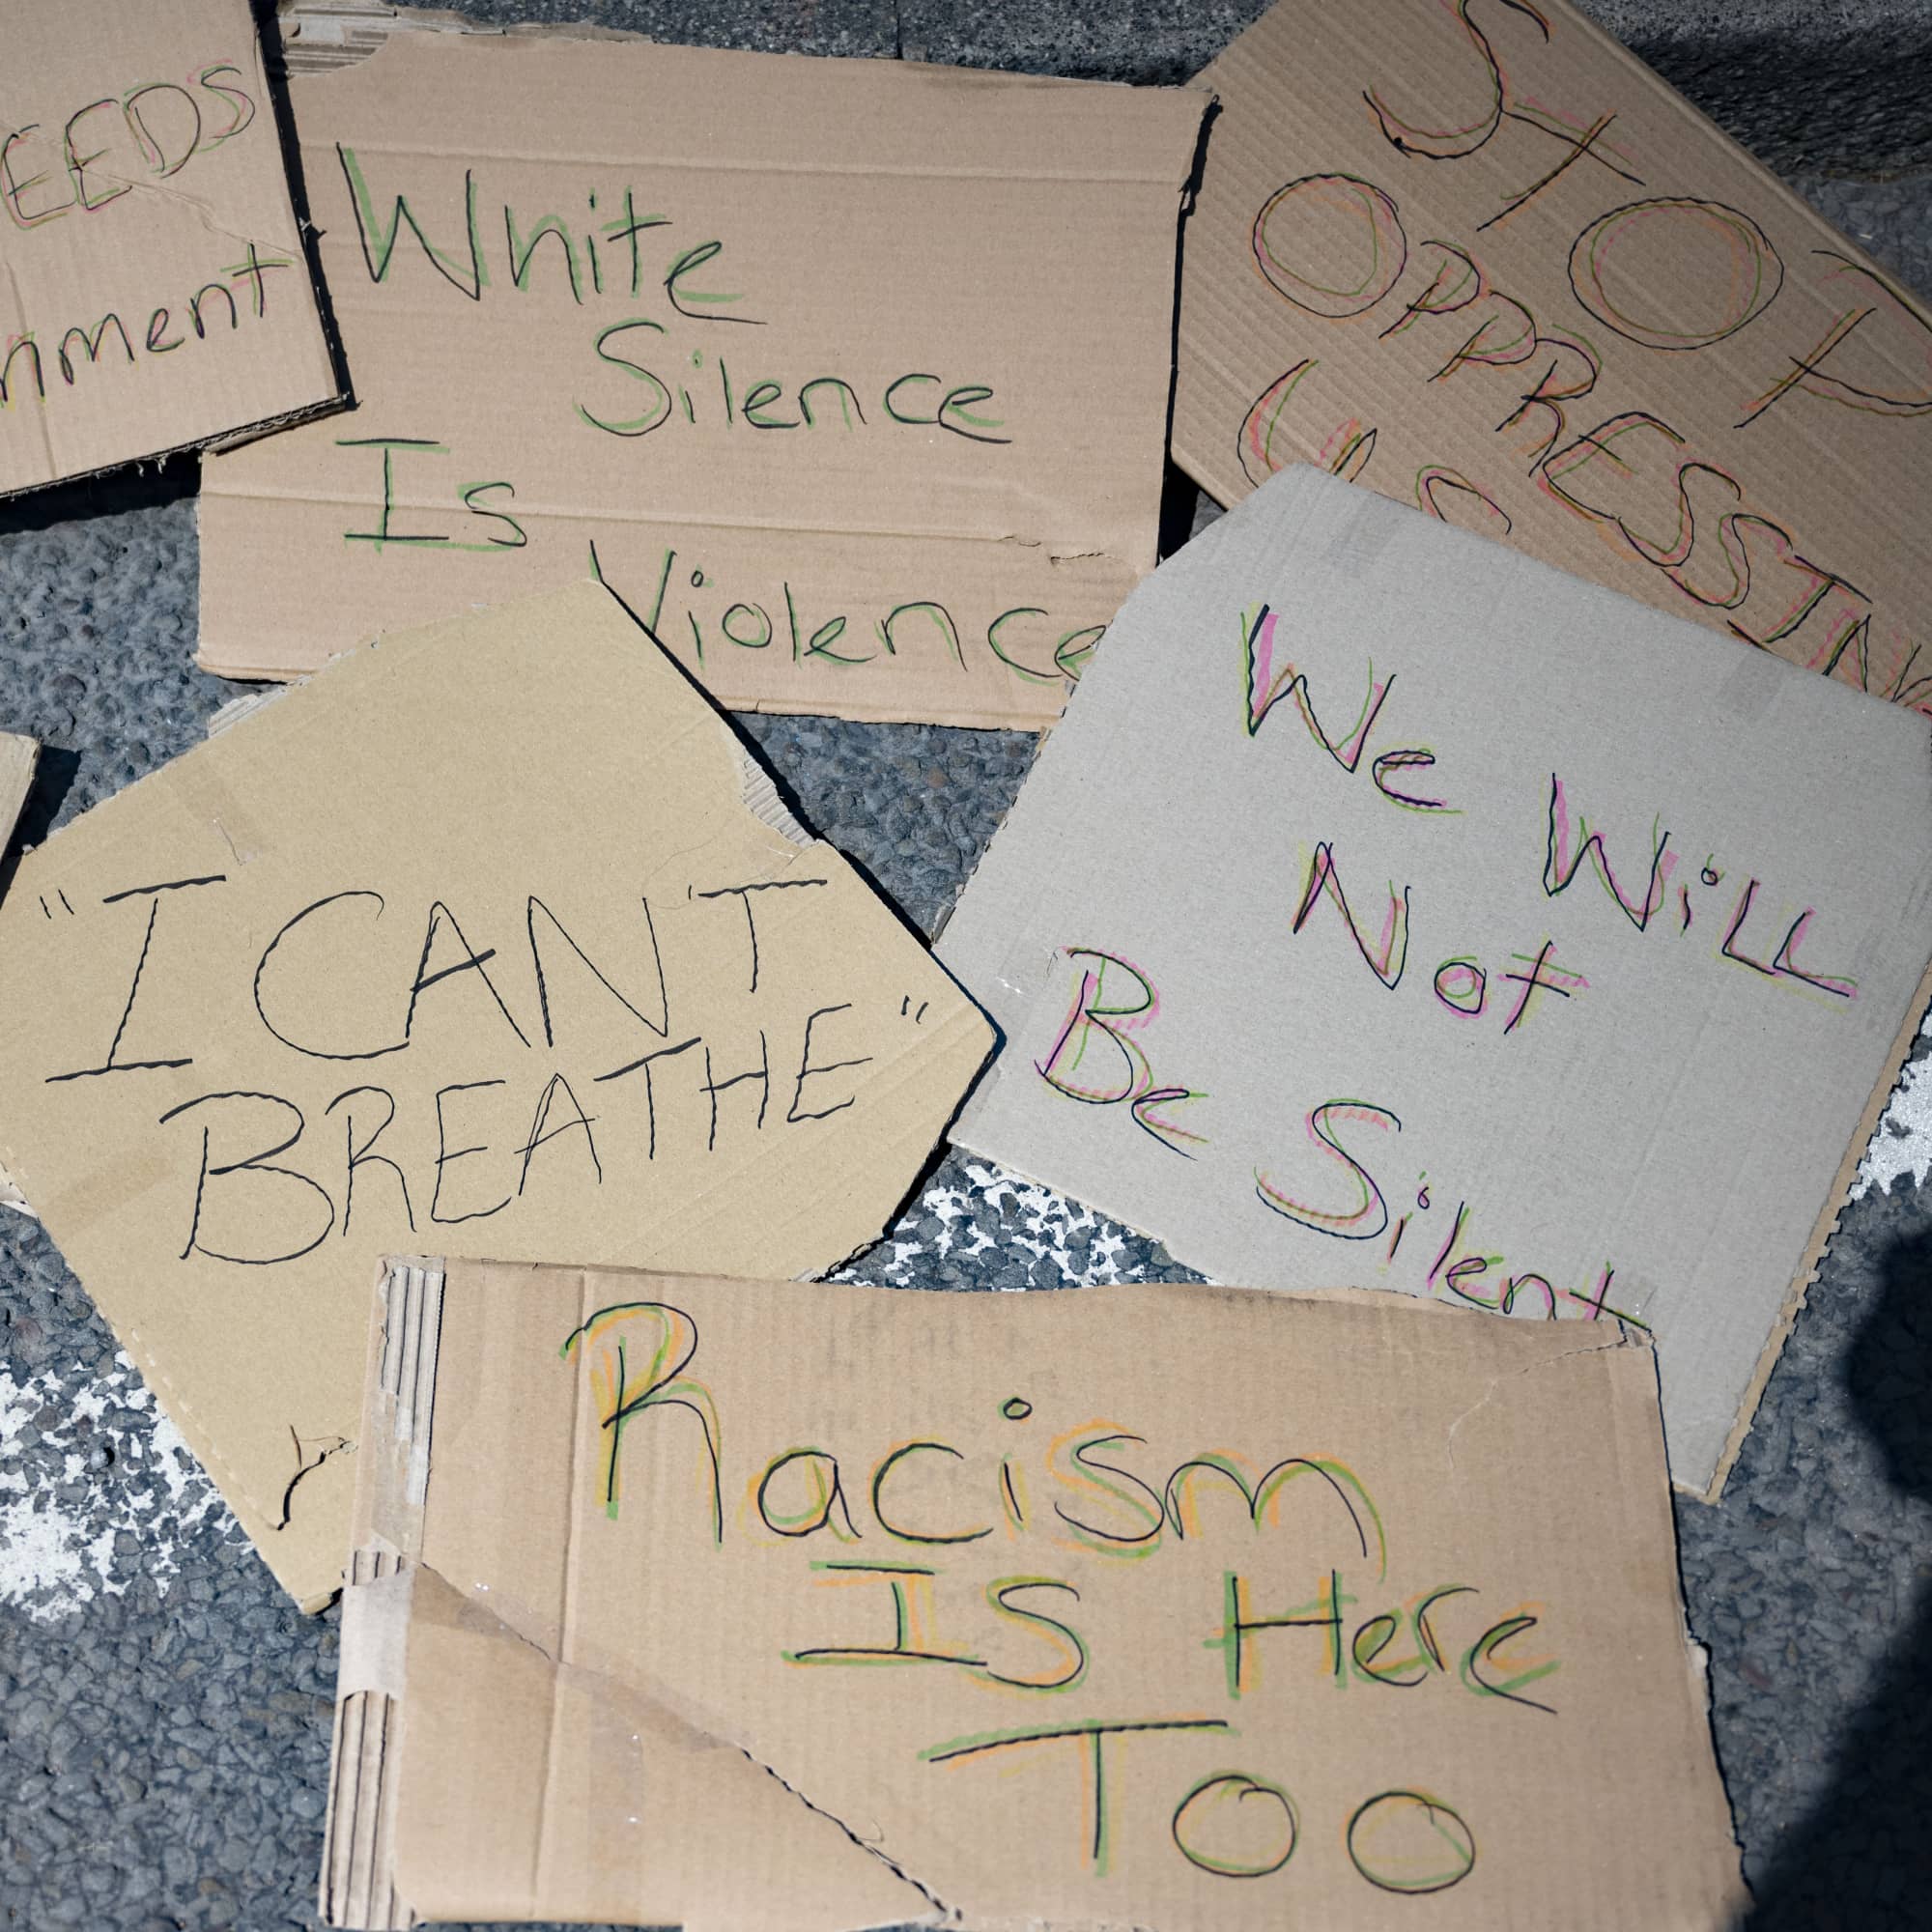 EEDS
nment
White
Silence
Is
Violence
STOP
OPPRESSIN
US
"I CAN'T
BREATHE"
We WiLL
Not
Be Silent
Racism
IS Here
Too